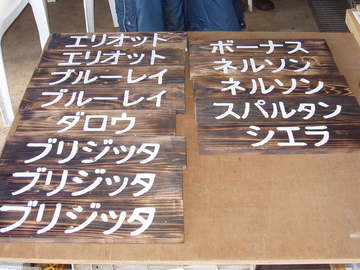 エリオット
エリオット
ブルーレイ
ブルーレイ
ダロウ
ブリジッタ
ブリジッタ
ブリジッタ
ボーナス
ネルソン
ネルソン
スパルタン
シエラ